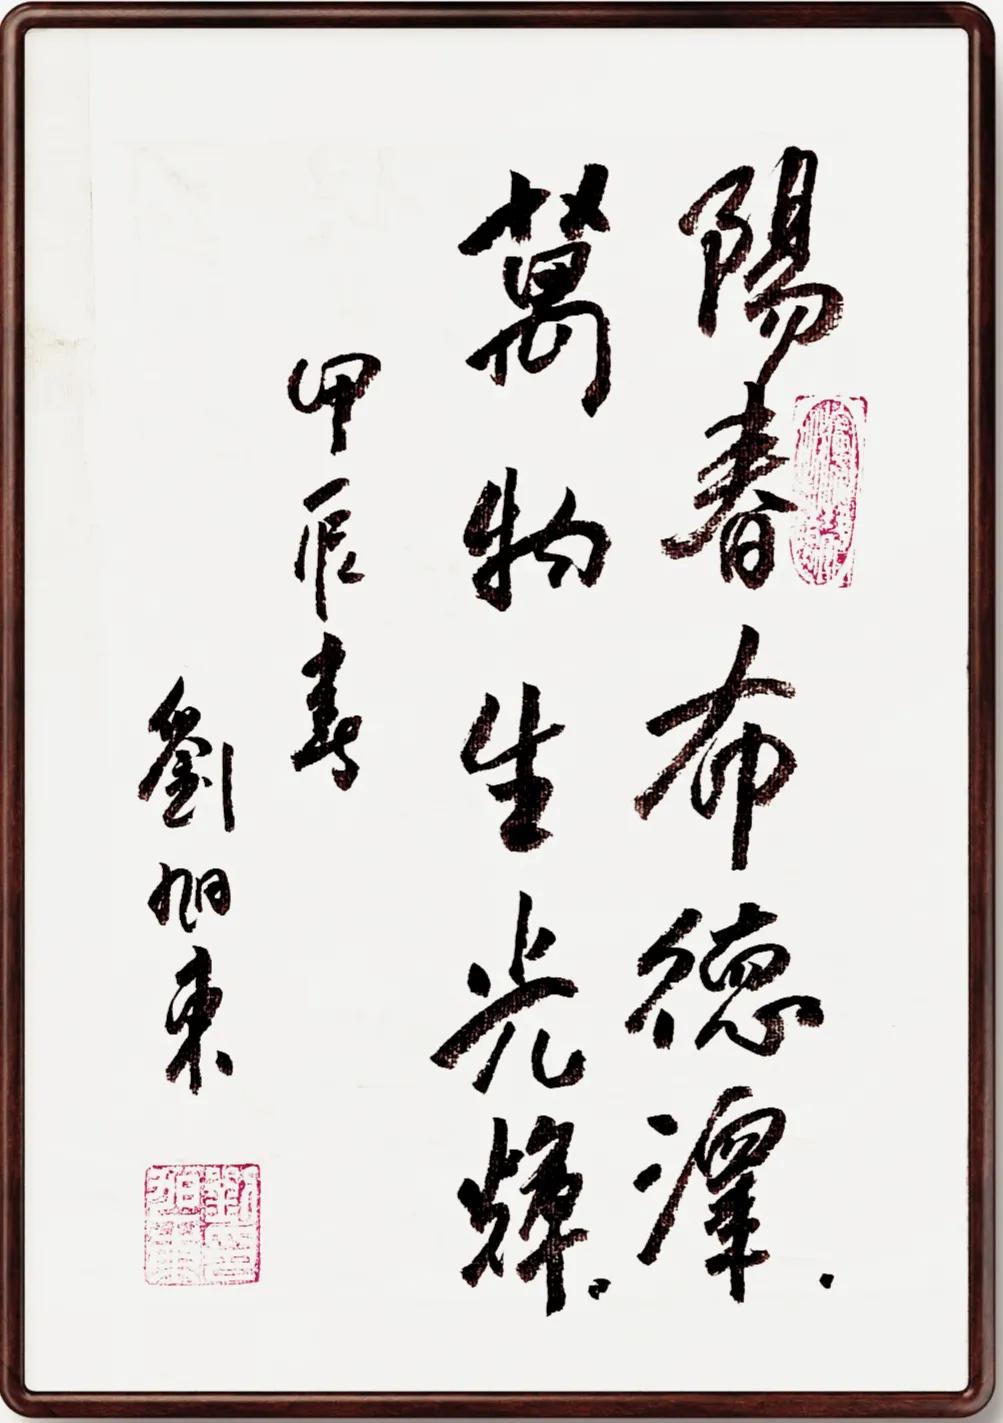 陽春布德澤.
萬物生光輝.
甲辰春
劉旭東